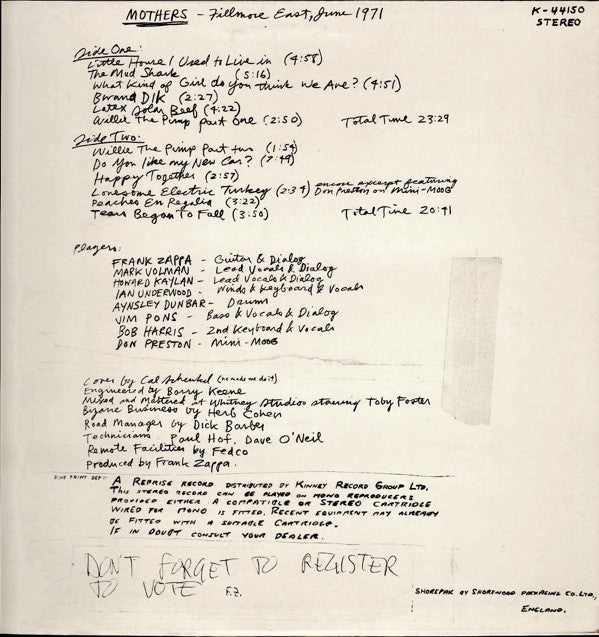 MOTHERS - Fillmore East, June 1971
K-44150
STEREO
Side One:
Little House I Used to Live in (4:58)
The Mud Shark (5:16)
What Kind of Girl do you think We Are? (4:51)
Bwana Dik (2:27)
Latex Solar Beef (4:22)
Willie The Pimp part one (2:50) Total Time 23:29
Side Two:
Willie The Pimp Part two (1:54)
Do You like my New Car? (7:49)
Happy Together (2:57)
Lonesome Electric Turkey (2:34) encore excerpt featuring Don Preston on Mini-MOOG
Peaches En Regalia (3:22)
Tears Began To Fall (3:50) Total Time 20:41
Players:
FRANK ZAPPA - Guitar & Dialog
MARK VOLMAN - Lead Vocals & Dialog
HOWARD KAYLAN - Lead Vocals & Dialog
IAN UNDERWOOD - Winds & Keyboard & Vocals
AYNSLEY DUNBAR - Drums
JIM PONS - Bass & Vocals & Dialog
BOB HARRIS - 2nd Keyboard & Vocals
DON PRESTON - Mini-MOOG
Cover by Cal Schenkel (he made me do it)
Engineered by Barry Keene
Mixed and Mastered at Whitney Studios starring Toby Foster
Bizarre Business by Herb Cohen
Road Manager by Dick Barber
Technicians Paul Hof, Dave O'Neil
Remote Facilities by Fedco
Produced by Frank Zappa.
FINE PRINT DEPT:
A REPRISE RECORD DISTRIBUTED BY KINNEY RECORD GROUP LTD.
THIS STEREO RECORD CAN BE PLAYED ON MONO REPRODUCERS
PROVIDED EITHER A COMPATIBLE OR STEREO CARTRIDGE
WIRED FOR MONO IS FITTED. RECENT EQUIPMENT MAY ALREADY
BE FITTED WITH A SUITABLE CARTRIDGE.
IF IN DOUBT CONSULT YOUR DEALER.
DON'T FORGET TO REGISTER
TO VOTE F.Z.
SHOREPAK BY SHOREWOOD PACKAGING CO. LTD.,
ENGLAND.